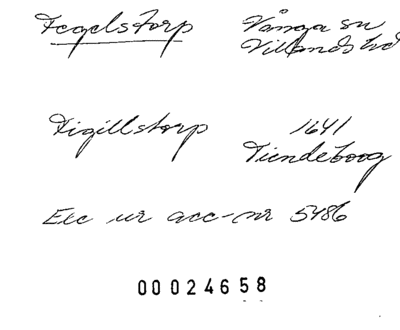 Tegelstorp Vånga sn
Villands hd
Tigillstorp 1641
Tiendeboog
Exc ur acc-nr 5486
00024658